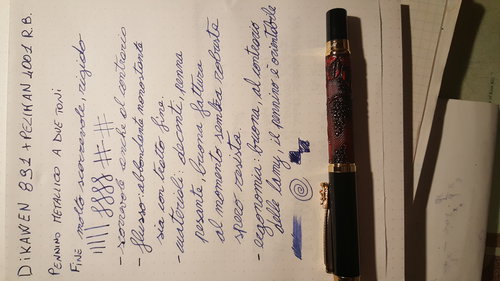 DIKAWEN 891 + PELIKAN 4001 R.B.
PENNINO METALLICO A DUE TONI
FINE molto scorrevole, rigido
- scorrevole anche al contrario
- flusso: abbondante nonostante
sia con tratto fine.
- materiali: decenti, penna
pesante, buona fattura
al momento sembra robusta
spero resista.
- ergonomia: buona, al contrario
delle lamy, il pennino è orientabile